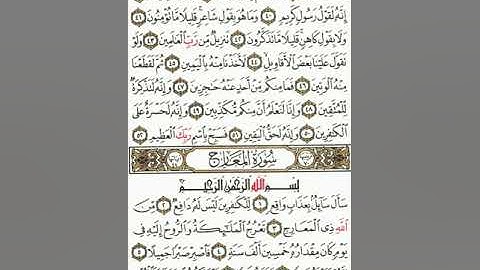 إِنَّهُۥ لَقَوۡلُ رَسُولٖ كَرِيمٖ ٤٠ وَمَا هُوَ بِقَوۡلِ شَاعِرٖۚ قَلِيلٗا مَّا تُؤۡمِنُونَ ٤١
وَلَا بِقَوۡلِ كَاهِنٖۚ قَلِيلٗا مَّا تَذَكَّرُونَ ٤٢ تَنزِيلٞ مِّن رَّبِّ ٱلۡعَٰلَمِينَ ٤٣ وَلَوۡ
تَقَوَّلَ عَلَيۡنَا بَعۡضَ ٱلۡأَقَاوِيلِ ٤٤ لَأَخَذۡنَا مِنۡهُ بِٱلۡيَمِينِ ٤٥ ثُمَّ لَقَطَعۡنَا
مِنۡهُ ٱلۡوَتِينَ ٤٦ فَمَا مِنكُم مِّنۡ أَحَدٍ عَنۡهُ حَٰجِزِينَ ٤٧ وَإِنَّهُۥ لَتَذۡكِرَةٞ
لِّلۡمُتَّقِينَ ٤٨ وَإِنَّا لَنَعۡلَمُ أَنَّ مِنكُم مُّكَذِّبِينَ ٤٩ وَإِنَّهُۥ لَحَسۡرَةٌ عَلَى
ٱلۡكَٰفِرِينَ ٥٠ وَإِنَّهُۥ لَحَقُّ ٱلۡيَقِينِ ٥١ فَسَبِّحۡ بِٱسۡمِ رَبِّكَ ٱلۡعَظِيمِ ٥٢
سُورَةُ المَعَارِجِ
بِسۡمِ ٱللَّهِ ٱلرَّحۡمَٰنِ ٱلرَّحِيمِ
سَأَلَ سَآئِلُۢ بِعَذَابٖ وَاقِعٖ ١ لِّلۡكَٰفِرِينَ لَيۡسَ لَهُۥ دَافِعٞ ٢ مِّنَ
ٱللَّهِ ذِي ٱلۡمَعَارِجِ ٣ تَعۡرُجُ ٱلۡمَلَٰٓئِكَةُ وَٱلرُّوحُ إِلَيۡهِ فِي
يَوۡمٖ كَانَ مِقۡدَارُهُۥ خَمۡسِينَ أَلۡفَ سَنَةٖ ٤ فَٱصۡبِرۡ صَبۡرٗا جَمِيلًا ٥